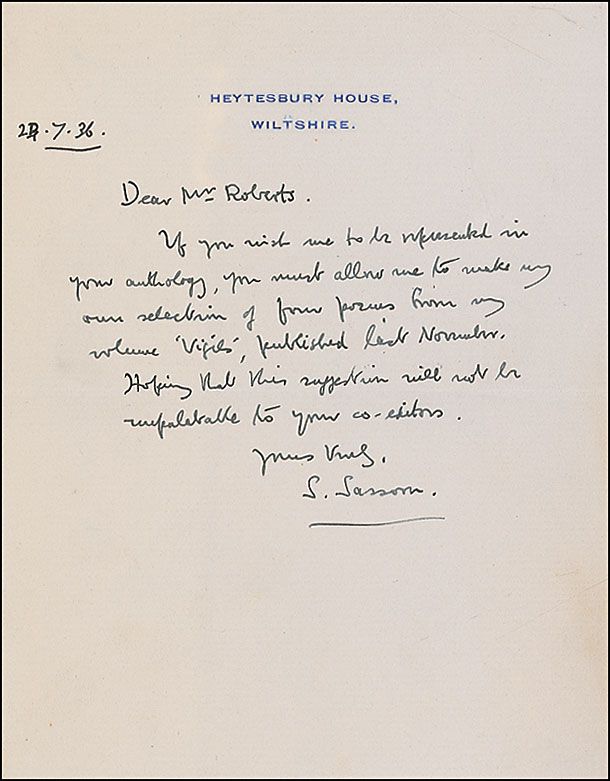 HEYTESBURY HOUSE,
WILTSHIRE.
.7.36.
Dear Mr Roberts.
If you wish me to be represented in
your anthology, you must allow me to make my
own selection of four poems from my
volume 'Vigils', published last November.
Hoping that this suggestion will not be
unpalatable to your co-editors.
Yours Truly,
S. Sassoon.